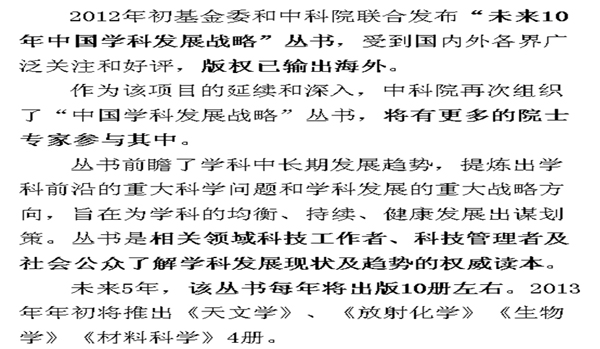 2012年初基金委和中科院联合发布“未来10
年中国学科发展战略”丛书，受到国内外各界广
泛关注和好评，版权已输出海外。
作为该项目的延续和深入，中科院再次组织
了“中国学科发展战略”丛书，将有更多的院士
专家参与其中。
丛书前瞻了学科中长期发展趋势，提炼出学
科前沿的重大科学问题和学科发展的重大战略方
向，旨在为学科的均衡、持续、健康发展出谋划
策。丛书是相关领域科技工作者、科技管理者及
社会公众了解学科发展现状及趋势的权威读本。
未来5年，该丛书每年将出版10册左右。2013
年年初将推出《天文学》、《放射化学》《生物
学》《材料科学》4册。